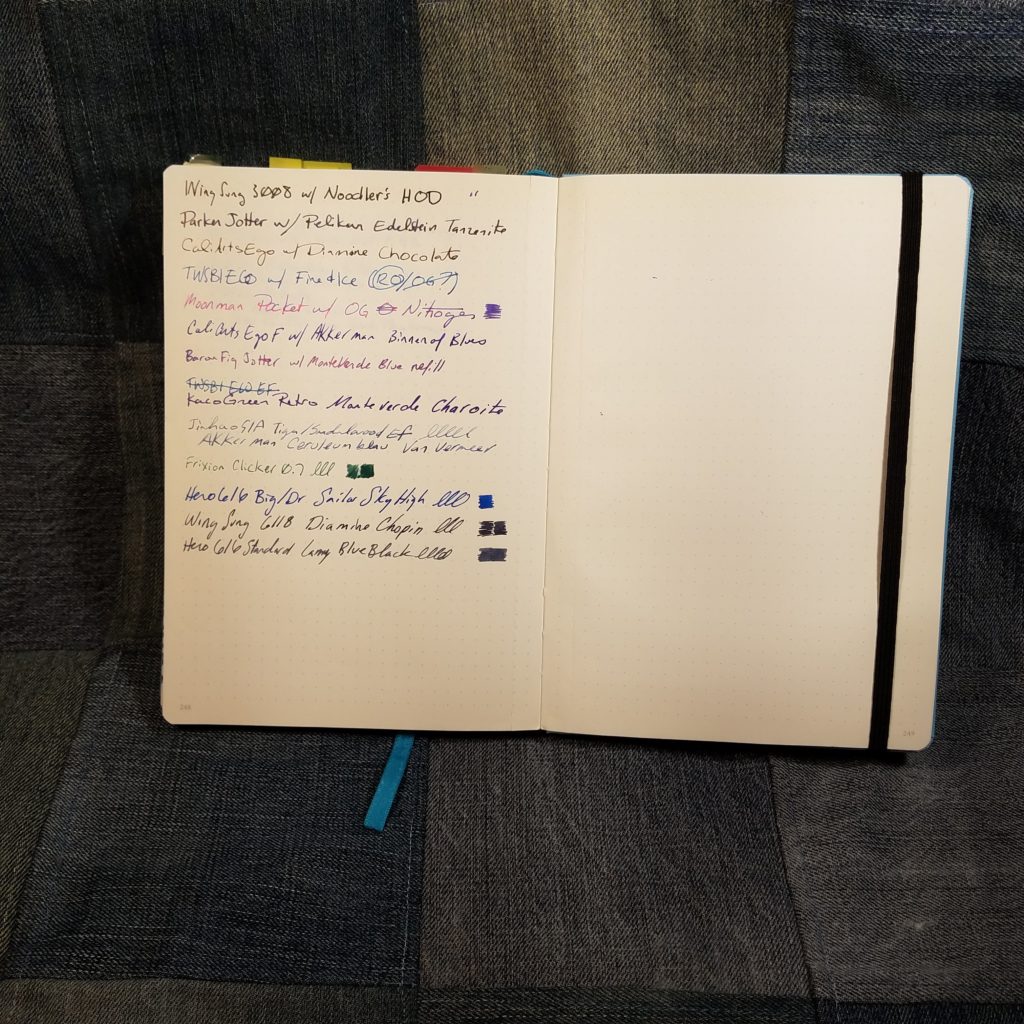 Wing Sung 3008 w/ Noodler's HOD "
Parker Jotter w/ Pelikan Edelstein Tanzanite
CaliArts Ego w/ Diamine Chocolate
TWSBI ECO w/ Fire & Ice (RO/OG?)
Moonman Pocket w/ OG Nitrogen
CaliArts Ego F w/ Akkerman Binnenhof Blues
Baron Fig Jotter w/ Monteverde Blue refill
TWSBI ECO EF
Kaco Green Retro Monteverde Charoite
Jinhao 51A Tiger/Sandalwood EF
Akkerman Ceruleumblau Van Vermeer
Frixion Clicker 0.7
Hero 616 Big/Dr Sailor Sky High
Wing Sung 618 Diamine Chopin
Hero 616 Standard Lamy Blue Black
248
249